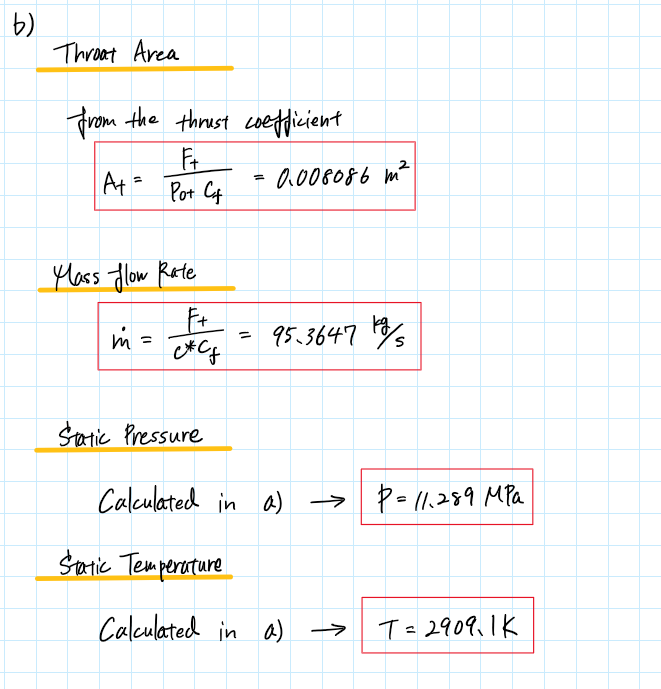 b)
Throat Area
from the thrust coefficient
At = Ft / (Pot Cf) = 0.008086 m²
Mass flow Rate
ṁ = Ft / (c* Cf) = 95.3647 kg/s
Static Pressure
Calculated in a) → P = 11.289 MPa
Static Temperature
Calculated in a) → T = 2909.1K